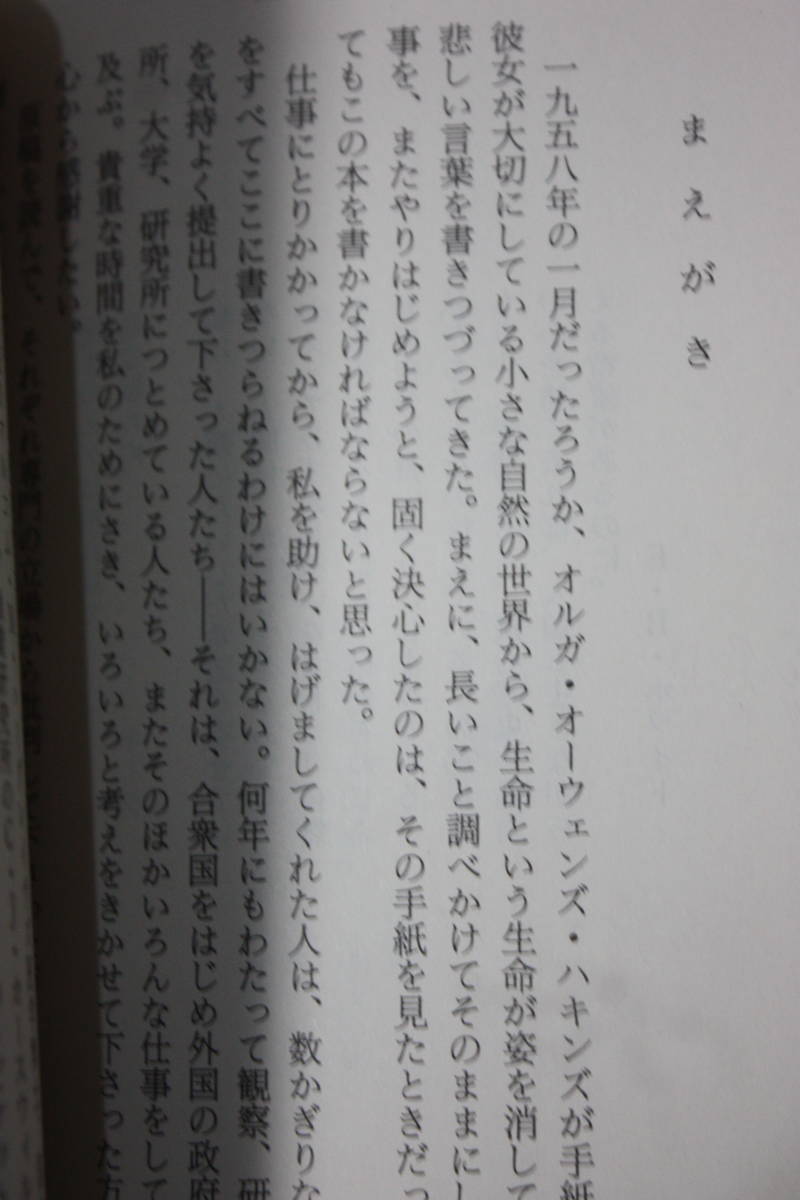 まえがき
一九五八年の一月だったろうか、オルガ・オーウェンズ・ハキンズが手紙
彼女が大切にしている小さな自然の世界から、生命という生命が姿を消して
悲しい言葉を書きつづってきた。まえに、長いこと調べかけてそのままにし
事を、またやりはじめようと、固く決心したのは、その手紙を見たときだっ
てもこの本を書かなければならないと思った。
仕事にとりかかってから、私を助け、はげましてくれた人は、数かぎりな
をすべてここに書きつらねるわけにはいかない。何年にもわたって観察、研
を気持よく提出して下さった人たち——それは、合衆国をはじめ外国の政府
所、大学、研究所につとめている人たち、またそのほかいろんな仕事をして
及ぶ。貴重な時間を私のためにさき、いろいろと考えをきかせて下さった方
心から感謝したい。
原稿を読んで、それぞれ専門の立場から